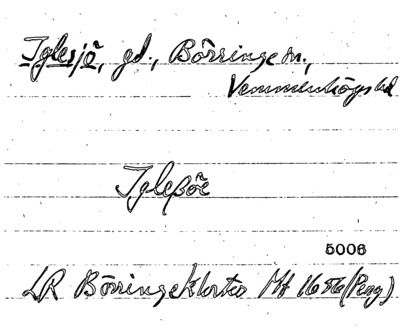 Iglesjö, gd., Börringe sn.,
Vemmenhögs hd
Igleßöe
5006
LR Börringekloster Mf 1656 (Peng)